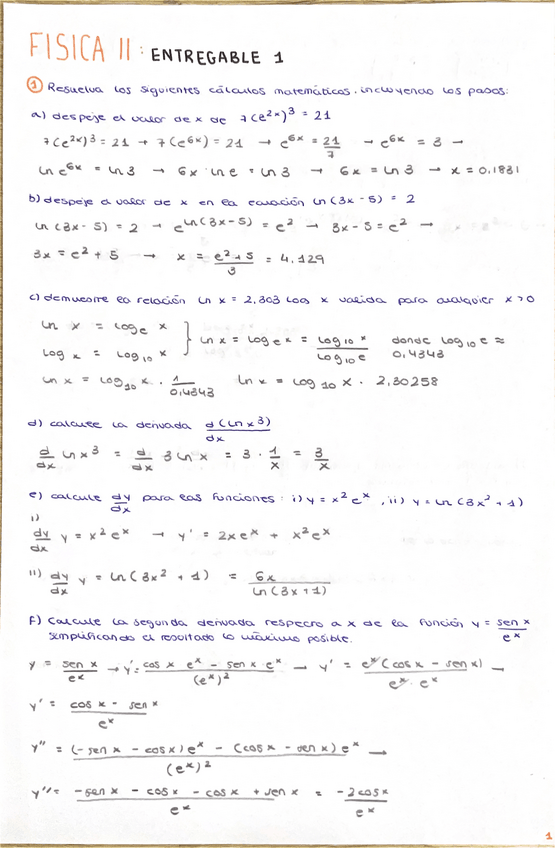 FISICA II: ENTREGABLE 1
① Resuelva los siguientes cálculos matemáticos, incluyendo los pasos:
a) despeje el valor de x de 7(e^2x)^3 = 21
7(e^2x)^3 = 21 → 7(e^6x) = 21 → e^6x = 21/7 → e^6x = 3 →
ln e^6x = ln 3 → 6x · ln e = ln 3 → 6x = ln 3 → x = 0,1831
b) despeje el valor de x en la ecuación ln (3x - 5) = 2
ln (3x - 5) = 2 → e^ln(3x - 5) = e^2 → 3x - 5 = e^2 →
3x = e^2 + 5 → x = (e^2 + 5)/3 = 4,129
c) demuestre la relación ln x = 2,303 log x valida para cualquier x > 0
ln x = log_e x } ln x = log_e x = log_10 x / log_10 e donde log_10 e ≈
log x = log_10 x 0,4343
ln x = log_10 x · 1/0,4343 ln x = log_10 x · 2,30258
d) calcule la derivada d(ln x^3)/dx
d/dx ln x^3 = d/dx 3 ln x = 3 · 1/x = 3/x
e) calcule dy/dx para las funciones: i) y = x^2 e^x, ii) y = ln (3x^2 + 1)
i)
dy/dx y = x^2 e^x → y' = 2x e^x + x^2 e^x
ii) dy/dx y = ln (3x^2 + 1) = 6x / ln (3x + 1)
F) Calcule la segunda derivada respecto a x de la función y = sen x / e^x
simplificando el resultado lo máximo posible.
y = sen x / e^x → y' = (cos x e^x - sen x · e^x) / (e^x)^2 → y' = e^x (cos x - sen x) / e^x · e^x →
y' = (cos x - sen x) / e^x
y'' = ((-sen x - cos x) e^x - (cos x - sen x) e^x) / (e^x)^2 →
y'' = (-sen x - cos x - cos x + sen x) / e^x = -2cos x / e^x
1